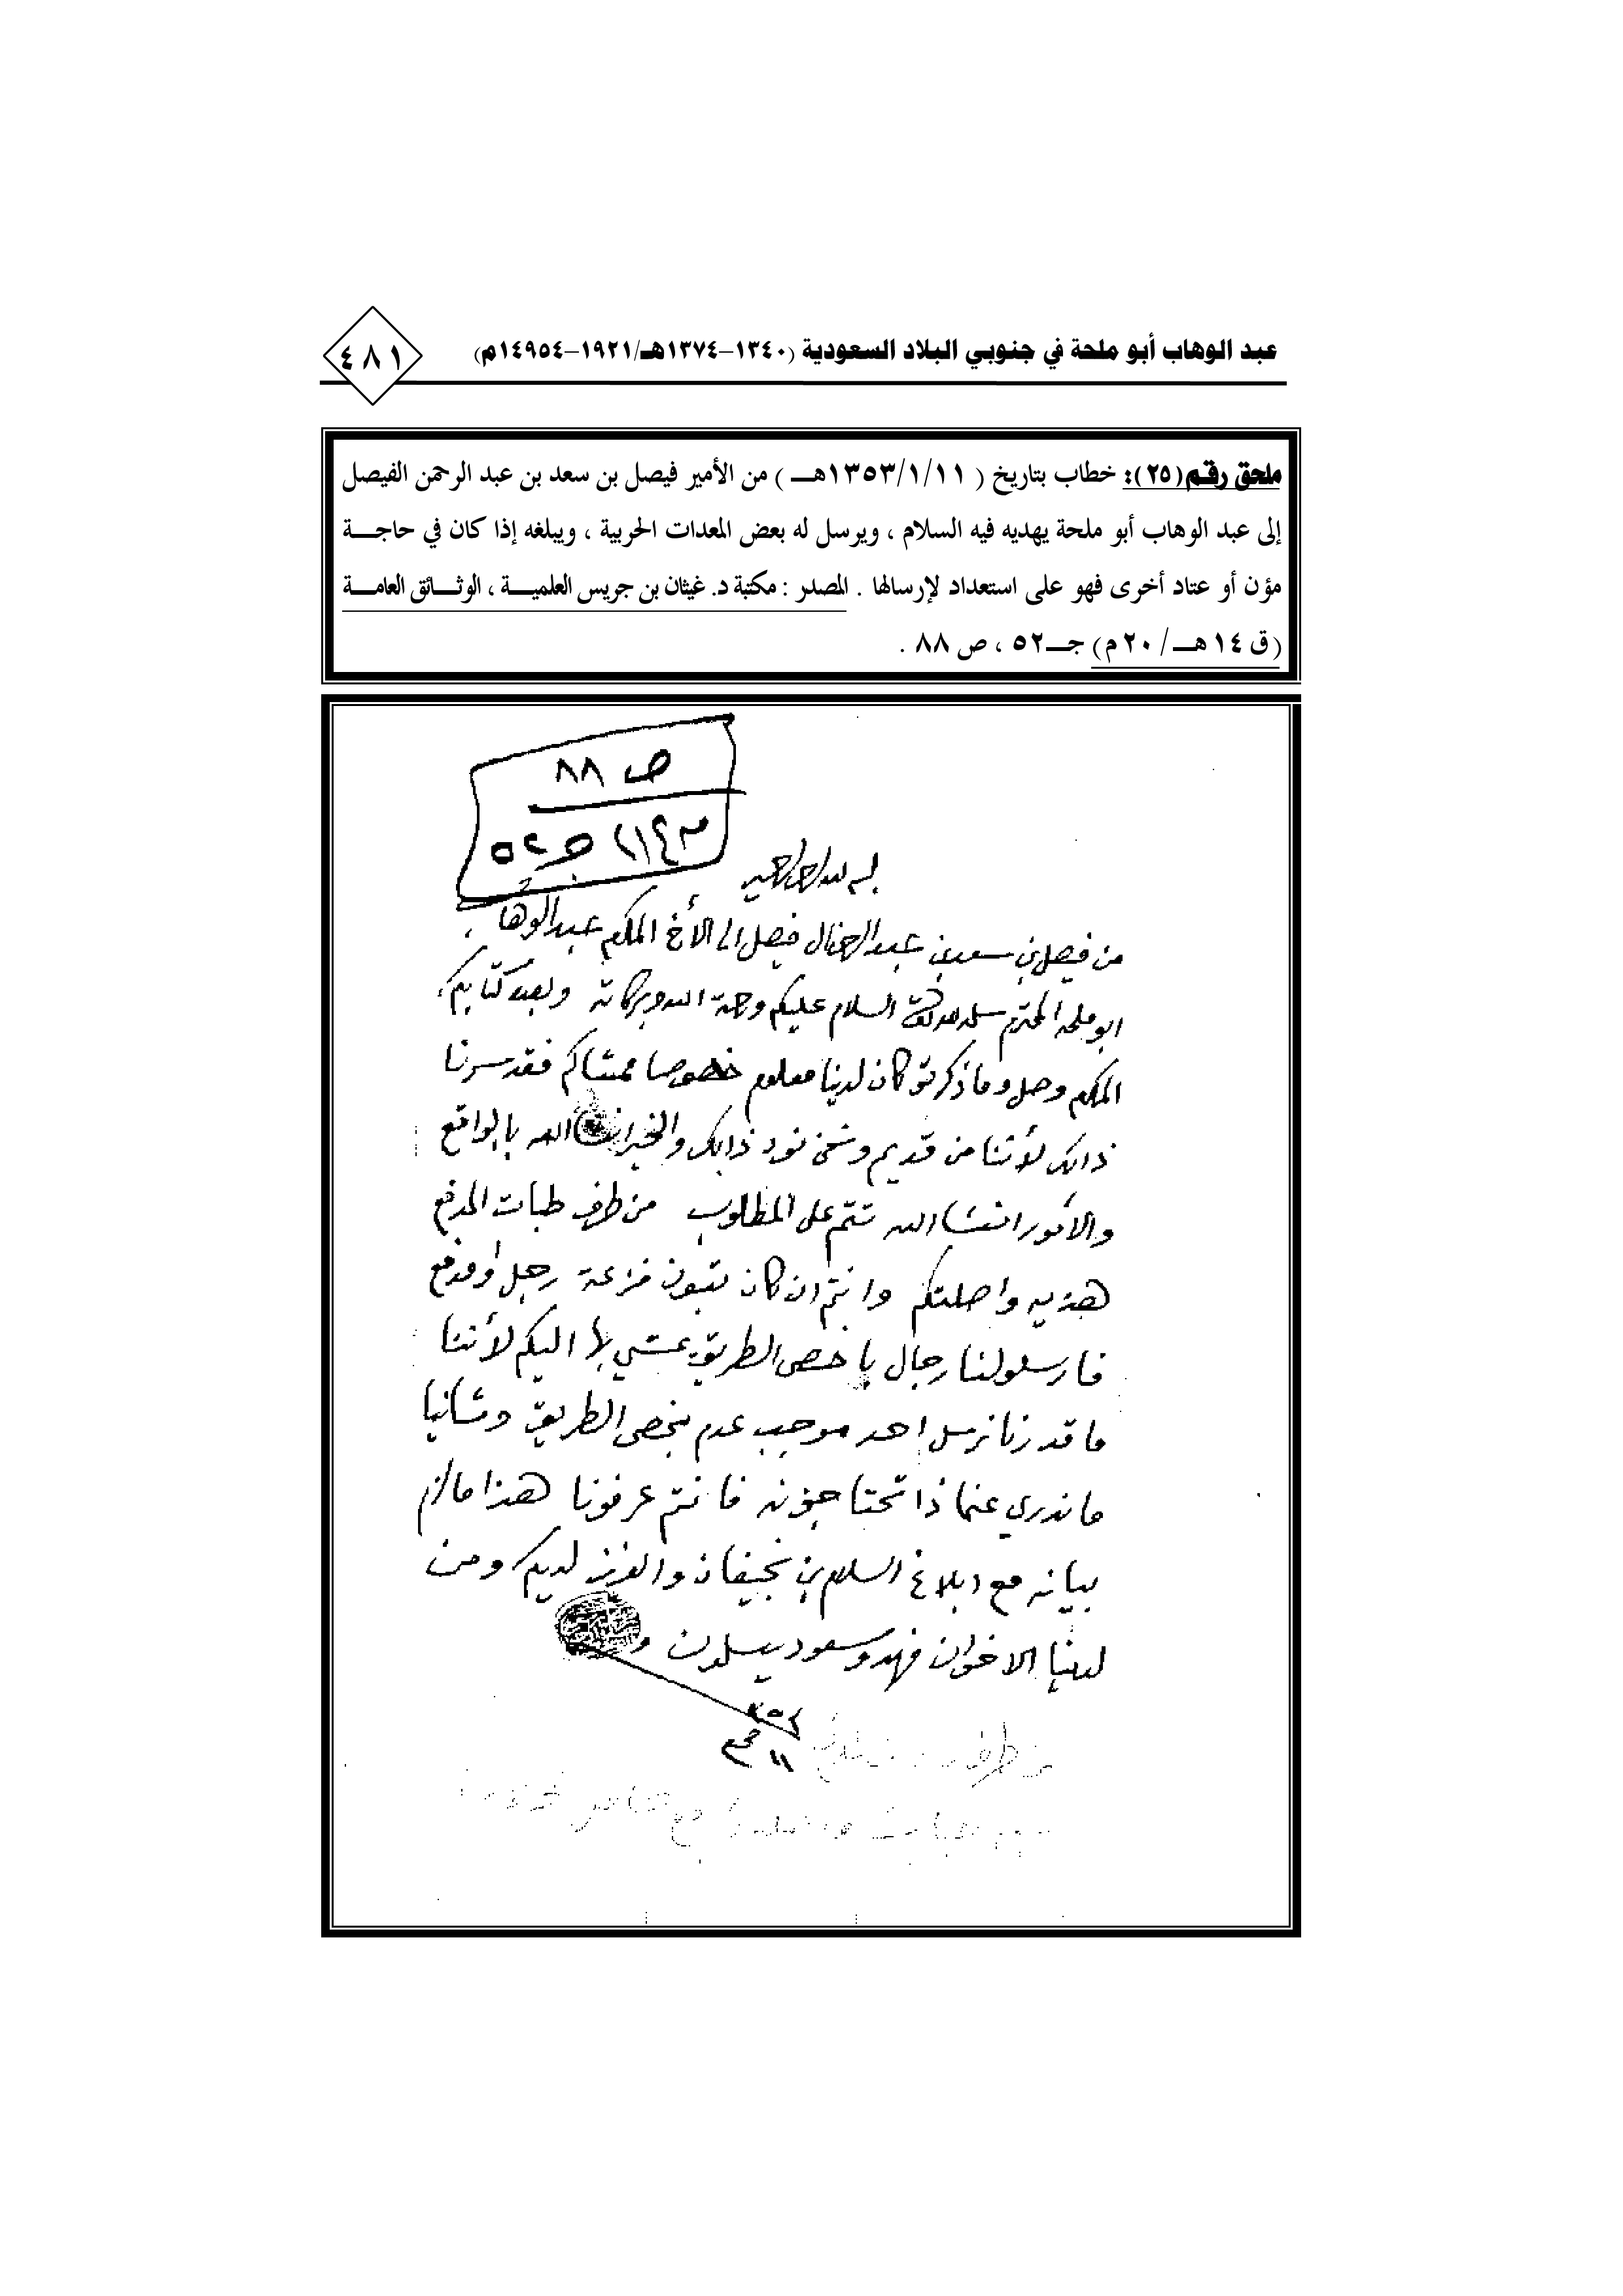 عبد الوهاب أبو ملحة في جنوبي البلاد السعودية (١٣٤٠-١٣٧٤هـ/١٩٢١-١٤٩٥٤م)
٤٨١
ملحق رقم (٢٥): خطاب بتاريخ ( ١٣٥٣/١/١١هـ ) من الأمير فيصل بن سعد بن عبد الرحمن الفيصل
إلى عبد الوهاب أبو ملحة يهديه فيه السلام ، ويرسل له بعض المعدات الحربية ، ويبلغه إذا كان في حاجة
مؤن أو عتاد أخرى فهو على استعداد لإرسالها . المصدر : مكتبة د. غيثان بن جريس العلمية ، الوثائق العامة
(ق ١٤ هـ / ٢٠ م) جـ٥٢ ، ص ٨٨ .
ص ٨٨
جـ ٥٢
بسم الله الرحمن الرحيم
من فيصل بن سعد بن عبد الرحمن ال فيصل الى الأخ المكرم عبد الوهاب
ابو ملحه المحترم سلمه الله السلام عليكم ورحمة الله وبركاته وبعد كتابكم
المكرم وصل وما ذكرتو كان لدينا معلوم خصوصا ممشاكم فقد سرنا
ذالك لأننا من قديم ونحن نود ذالك والخير انشاالله بالواقع
والأمور انشاالله تتم على المطلوب من طرف طبات المدفع
هذيه واصلتكم وانتم ان كان تبون فزعة رجل أو مدفع
فارسلولنا رجال يا خص الطريق يمشي بها اليكم لأننا
ما قدرنا نرسل احد موجب عدم يخص الطريق وثانيا
ما ندري عنما ذا تحتاجونه فانتم عرفونا هذا مالزم
بيانه مع ابلاغ السلام بن نجيفان والعزيز لديكم ومن
لدينا الاخوان فهد وسعود يسلمون و
١١ محرم